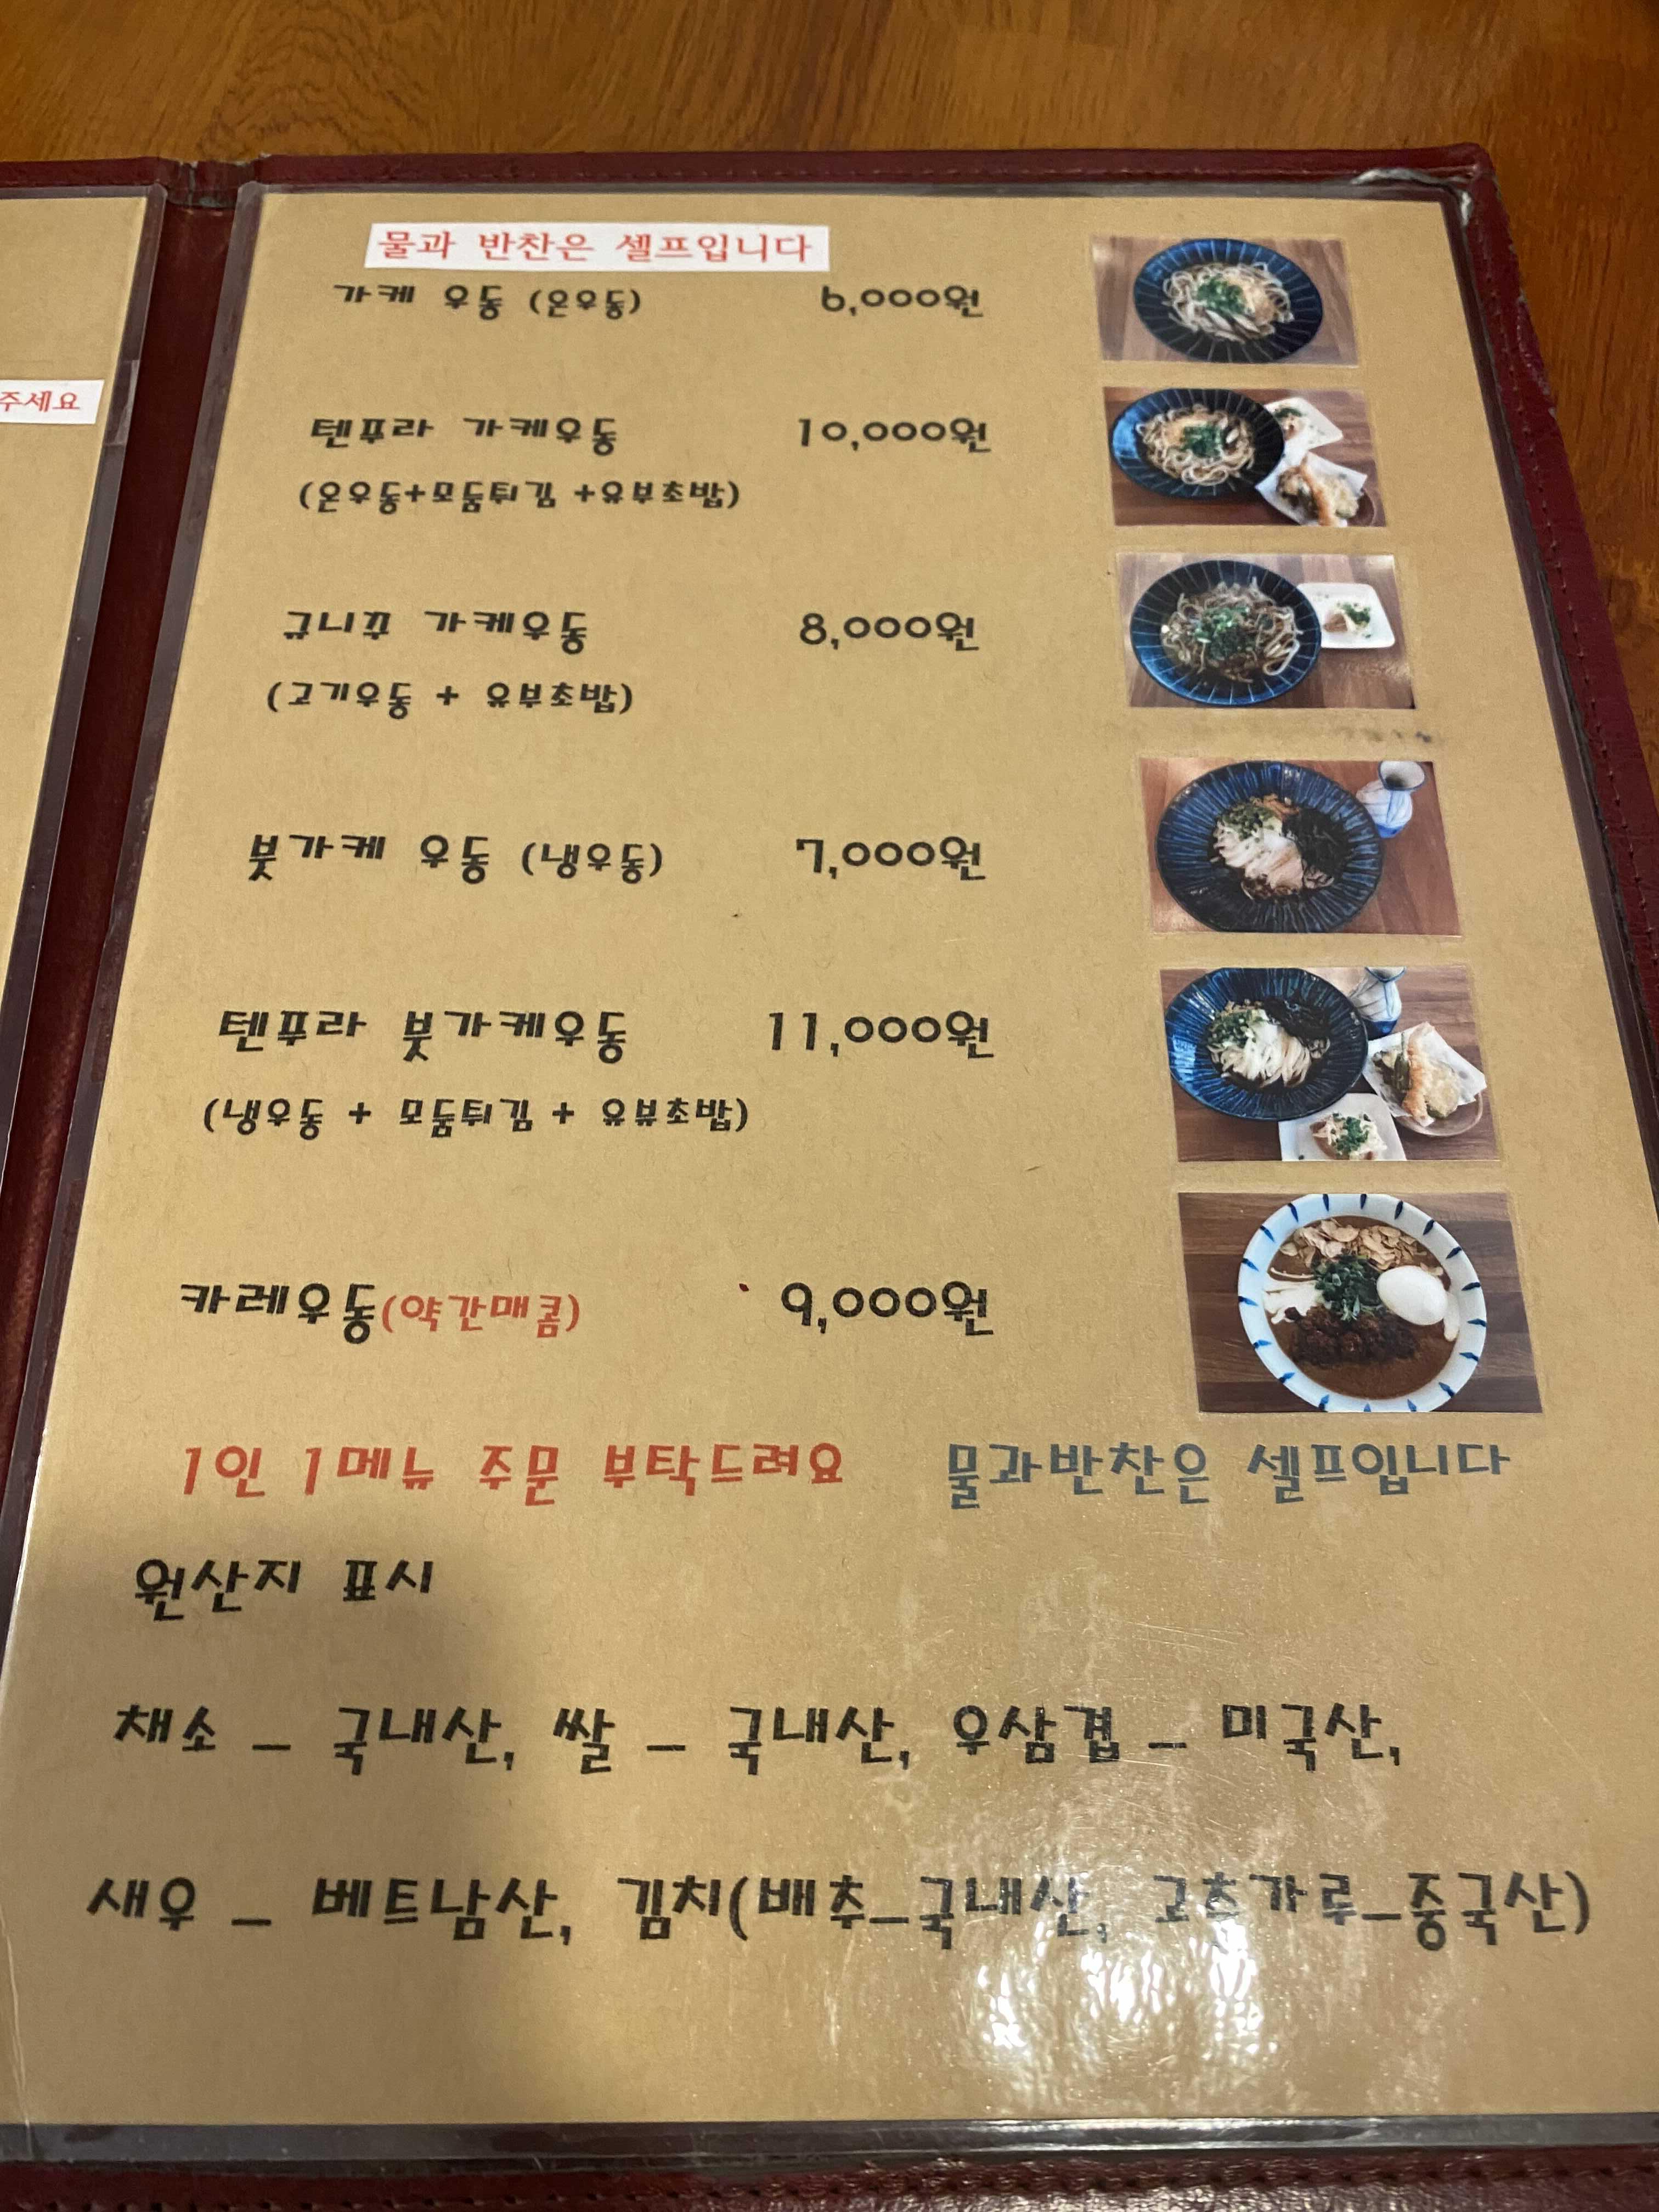 주세요
물과 반찬은 셀프입니다
가케 우동 (온우동) 6,000원
텐푸라 가케우동 10,000원
(온우동+모둠튀김 +유부초밥)
규니꾸 가케우동 8,000원
(고기우동 + 유부초밥)
붓가케 우동 (냉우동) 7,000원
텐푸라 붓가케우동 11,000원
(냉우동 + 모둠튀김 + 유뷰초밥)
카레우동(약간매콤) 9,000원
1인 1메뉴 주문 부탁드려요 물과반찬은 셀프입니다
원산지 표시
채소 _ 국내산, 쌀 _ 국내산, 우삼겹 _ 미국산,
새우 _ 베트남산, 김치(배추_국내산, 고춧가루_중국산)